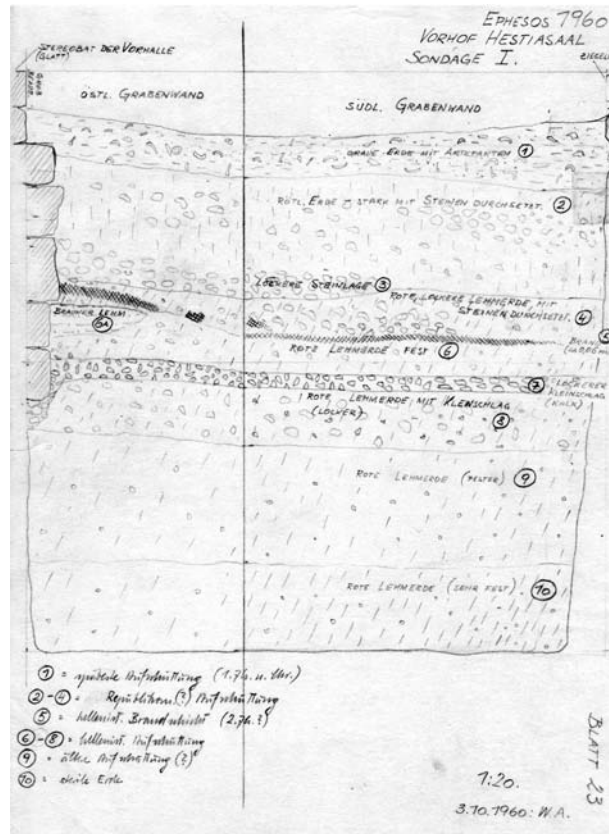 EPHESOS 1960
VORHOF HESTIASAAL
SONDAGE I.
STEREOBAT DER VORHALLE
(GLATT)
ÖSTL. GRABENWAND
SÜDL. GRABENWAND
GRAUE ERDE MIT ARTEFAKTEN ①
RÖTL. ERDE STARK MIT STEINEN DURCHSETZT. ②
LOCKERE STEINLAGE ③
ROTE, LOCKERE LEHMERDE, MIT
STEINEN DURCHSETZT. ④
BRAUNER LEHM
6A
ROTE LEHMERDE FEST ⑥
⑦ LOCKERER
KLEINSCHLAG
(KALK)
ROTE LEHMERDE MIT KLEINSCHLAG
(LOCKER) ⑧
ROTE LEHMERDE (FESTER) ⑨
ROTE LEHMERDE (SEHR FEST) ⑩
① = späteste Aufschüttung (1. Jh. n. Chr.)
②-④ = Republikan. (?) Aufschüttung
⑤ = hellenist. Brandschicht (2. Jh. ?)
⑥-⑧ = hellenist. Aufschüttung
⑨ = ältere Aufschüttung (?)
⑩ = Erde
BLATT 23
1:20.
3.10.1960. W.A.